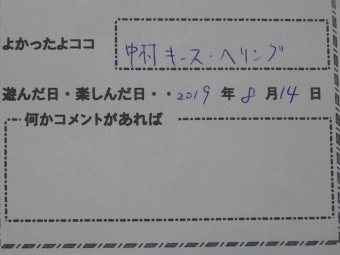 よかったよココ 中村キース・ヘリング
遊んだ日・楽しんだ日・・2019年8月14日
何かコメントがあれば